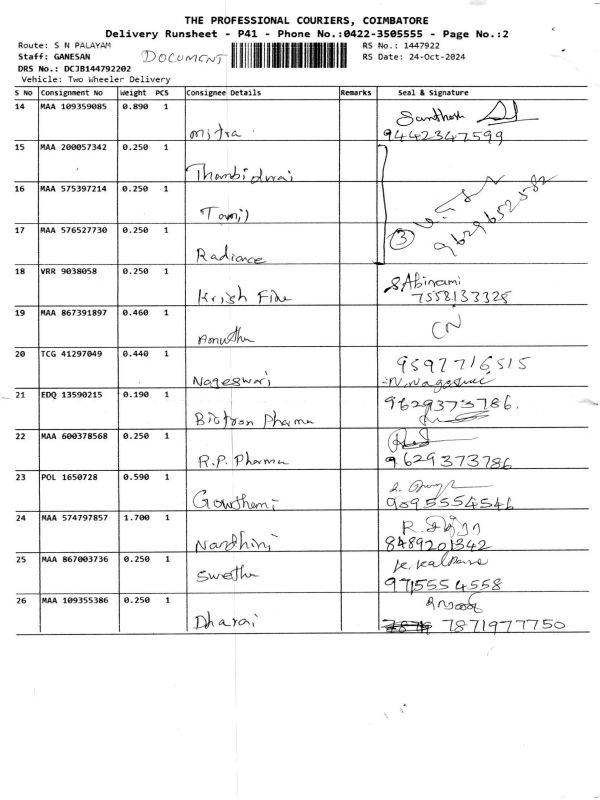 THE PROFESSIONAL COURIERS, COIMBATORE
Delivery Runsheet - P41 - Phone No.:0422-3505555 - Page No.:2
Route: S N PALAYAM RS No.: 1447922
Staff: GANESAN DOCUMENT RS Date: 24-Oct-2024
DRS No.: DCJB144792202
Vehicle: Two Wheeler Delivery
S No Consignment No Weight PCS Consignee Details Remarks Seal & Signature
14 MAA 109359085 0.890 1
Santhosh
mitra 9442347599
15 MAA 200057342 0.250 1
Thambidurai
16 MAA 575397214 0.250 1
Tamil
17 MAA 576527730 0.250 1
3 9629652582
Radiance
18 VRR 9038058 0.250 1
S Abinami
Krish Fine 7558133328
19 MAA 867391897 0.460 1
CN
Amutha
20 TCG 41297049 0.440 1
9597716515
Nageswari N. Nageswari
21 EDQ 13590215 0.190 1
9629373786.
Biotron Pharma
22 MAA 600378568 0.250 1
R.P. Pharma 9629373786
23 POL 1650728 0.590 1
Gowthami 9895554546
24 MAA 574797857 1.700 1
Nandhini 8489201342
25 MAA 867003736 0.250 1
K. Kalpana
Swetha 9715554558
26 MAA 109355386 0.250 1
Dharai 7871977750